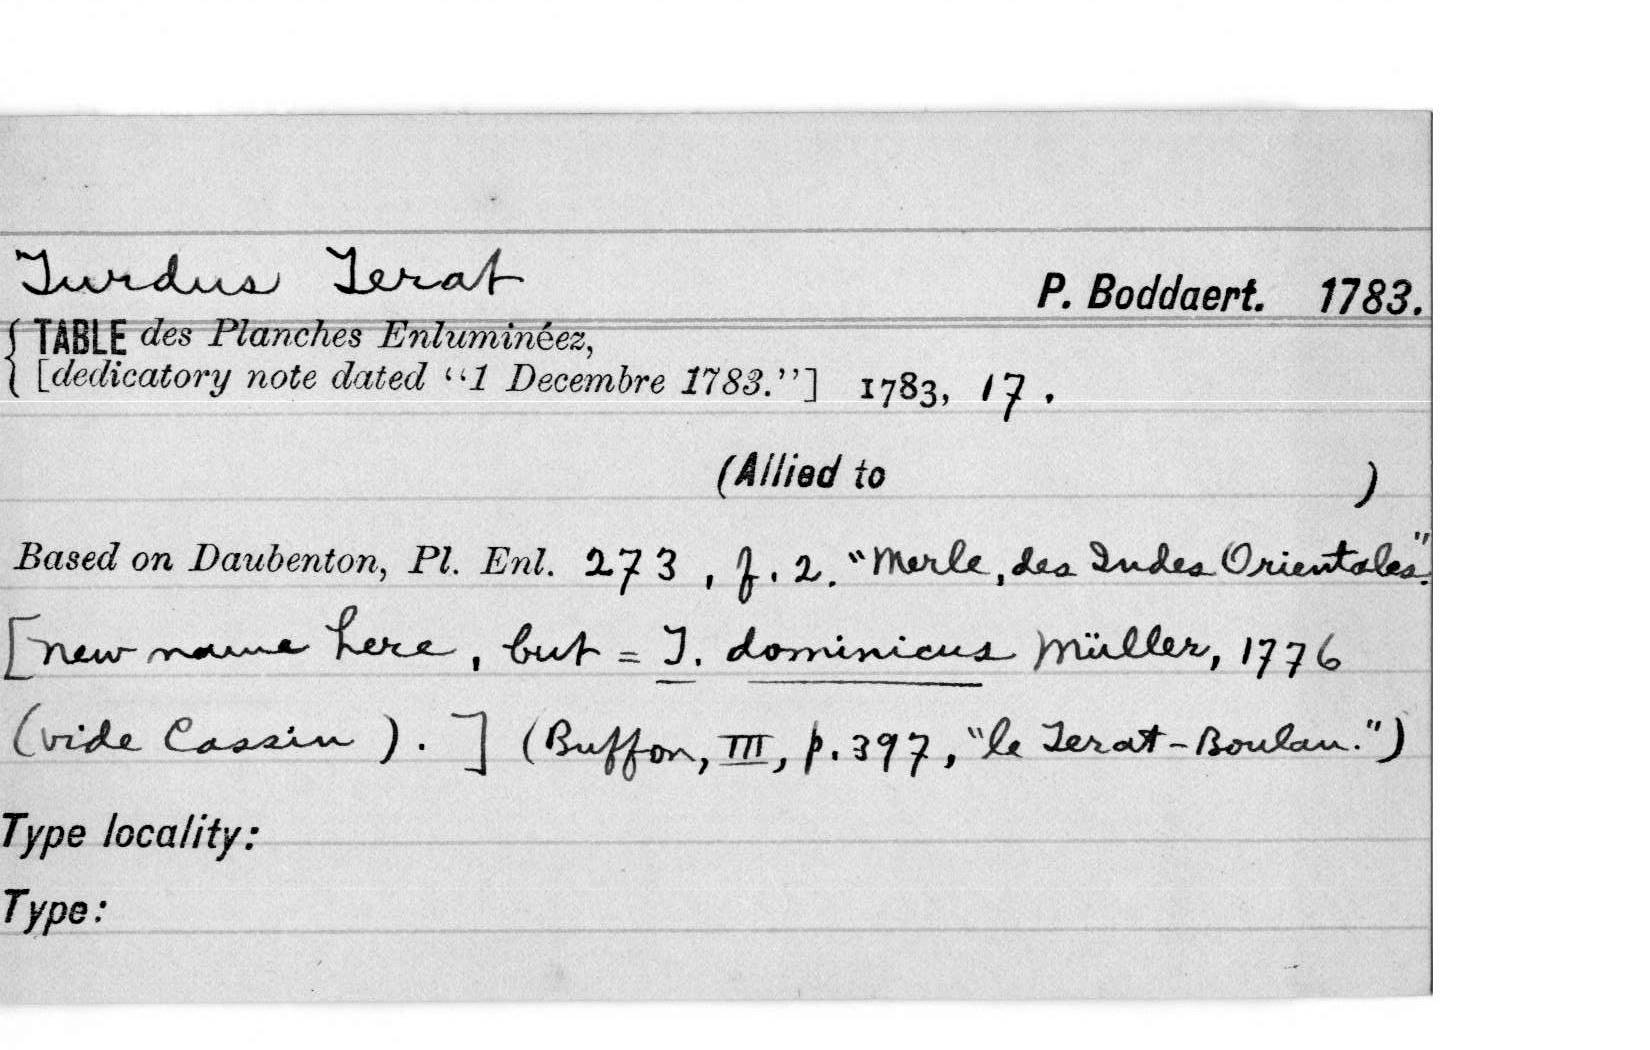 Turdus Terat P. Boddaert. 1783.
{ TABLE des Planches Enluminéez,
[dedicatory note dated "1 Decembre 1783."] 1783, 17.
(Allied to )
Based on Daubenton, Pl. Enl. 273, f. 2. "Merle, des Indes Orientales".
[new name here, but = T. dominicus Müller, 1776
(vide Cassin). ] (Buffon, III, p. 397, "le Terat-Boulan.")
Type locality:
Type: